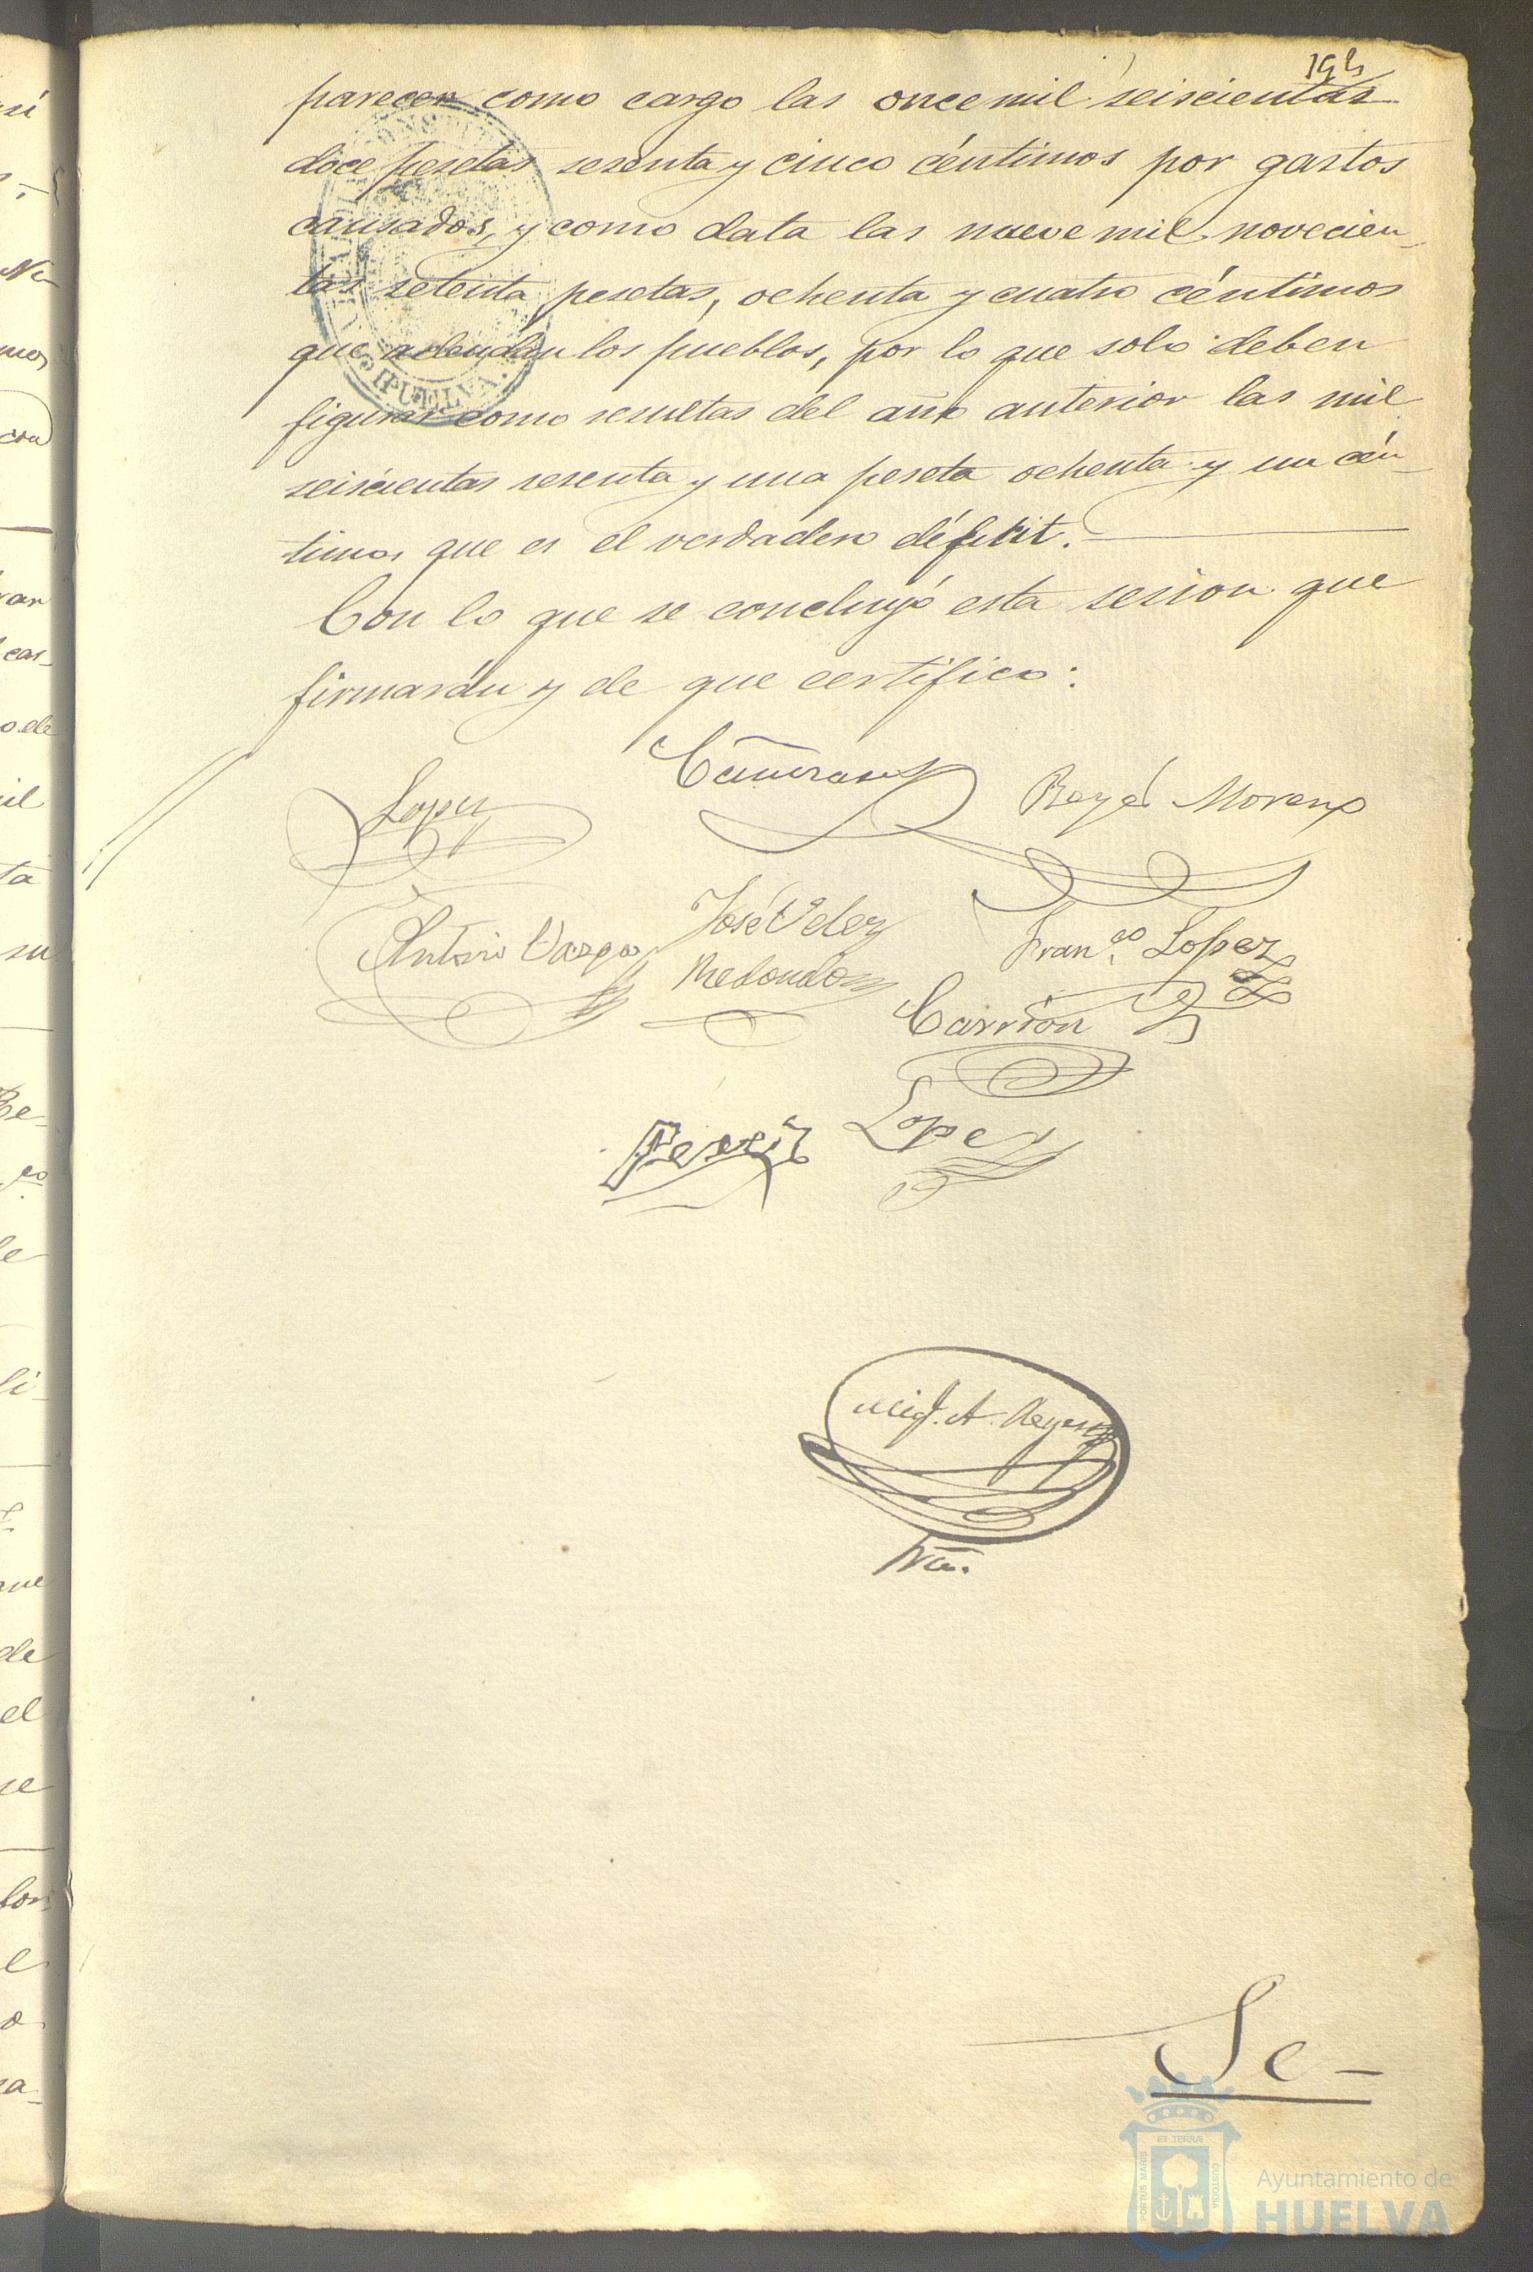 194
parecer como cargo las once mil seiscientas
doce pesetas sesenta y cinco céntimos por gastos
causados, y como data las nueve mil novecien-
tas setenta pesetas, ochenta y cuatro céntimos
que adeudan los pueblos, por lo que solo deben
figurar como resultas del año anterior las mil
seiscientas sesenta y una peseta ochenta y un cén-
timos que es el verdadero déficit.
Con lo que se concluyó esta sesion que
firmarán y de que certifico:
Lopez
Reyes Moreno
Antonio Vargas
José Velez
Redondo
Fran.co Lopez
Carrion
Lopez
Mig.l A. Reyes
Srio.
Se-
HUELVA
Ayuntamiento de
HUELVA
PORTUS MARIS
ET TERRÆ
CUSTODIA